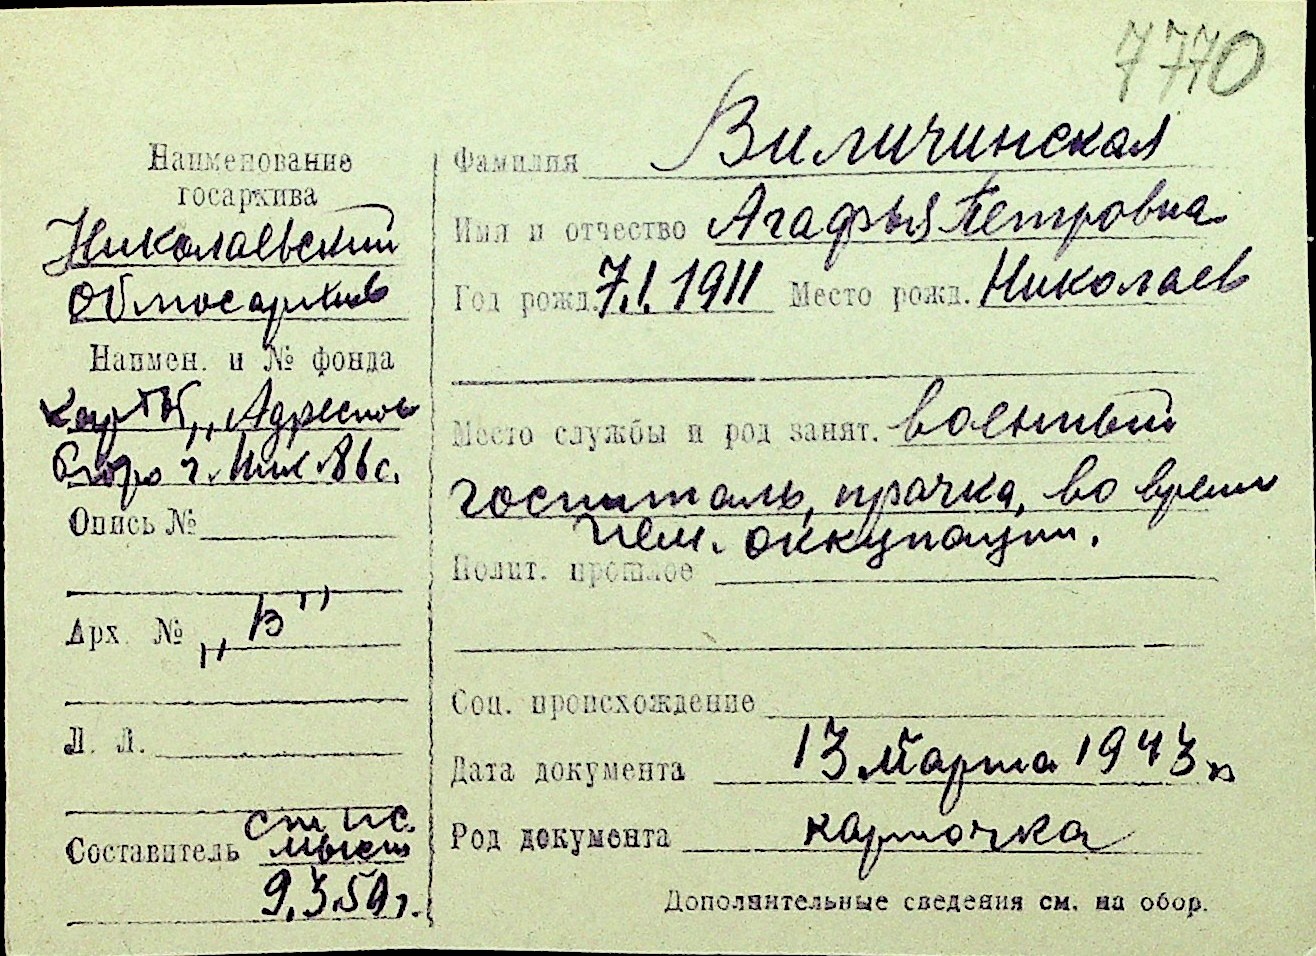 7770
Наименование
госархива
Николаевский
Облгосархив
Наимен. и № фонда
„Адресное
бюро г.
Опись №
Арх. № „В"
Л. Л.
Составитель
9.3.59 г.
Фамилия Виличинская
Имя и отчество Агафья Петровна
Год рожд. 7.I.1911 Место рожд. Николаев
Место службы и род занят. военный
госпиталь, прачка, во время
нем. оккупации.
Полит. прошлое
Соц. происхождение
Дата документа 13 марта 1943 г.
Род документа карточка
Дополнительные сведения см. на обор.